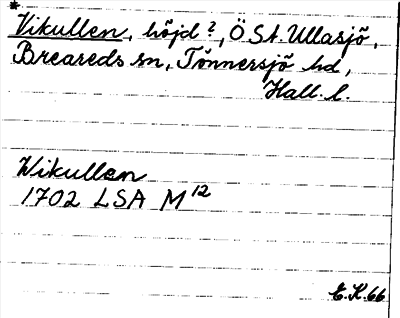 *
Vikullen, höjd?, Ö St. Ullasjö,
Breareds sn, Tönnersjö hd,
Hall. l.
Wikullen
1702 LSA M 12
E.K. 66